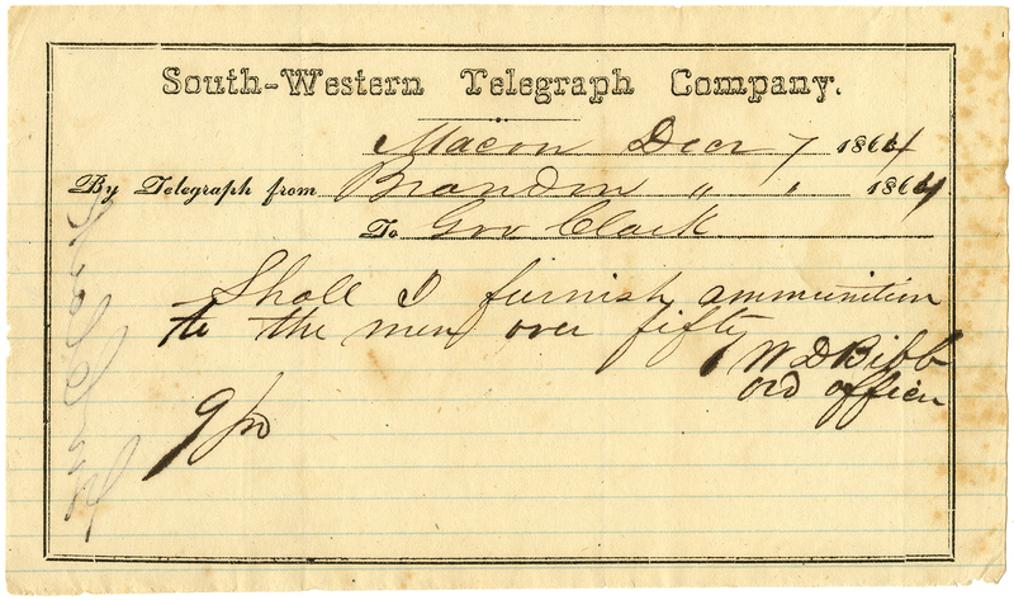 South-Western Telegraph Company.
Macon Decr 7 1864
By Telegraph from Brandon " " 1864
To Gov Clark
Shall I furnish ammunition
to the men over fifty
W D Bibb
ord officer